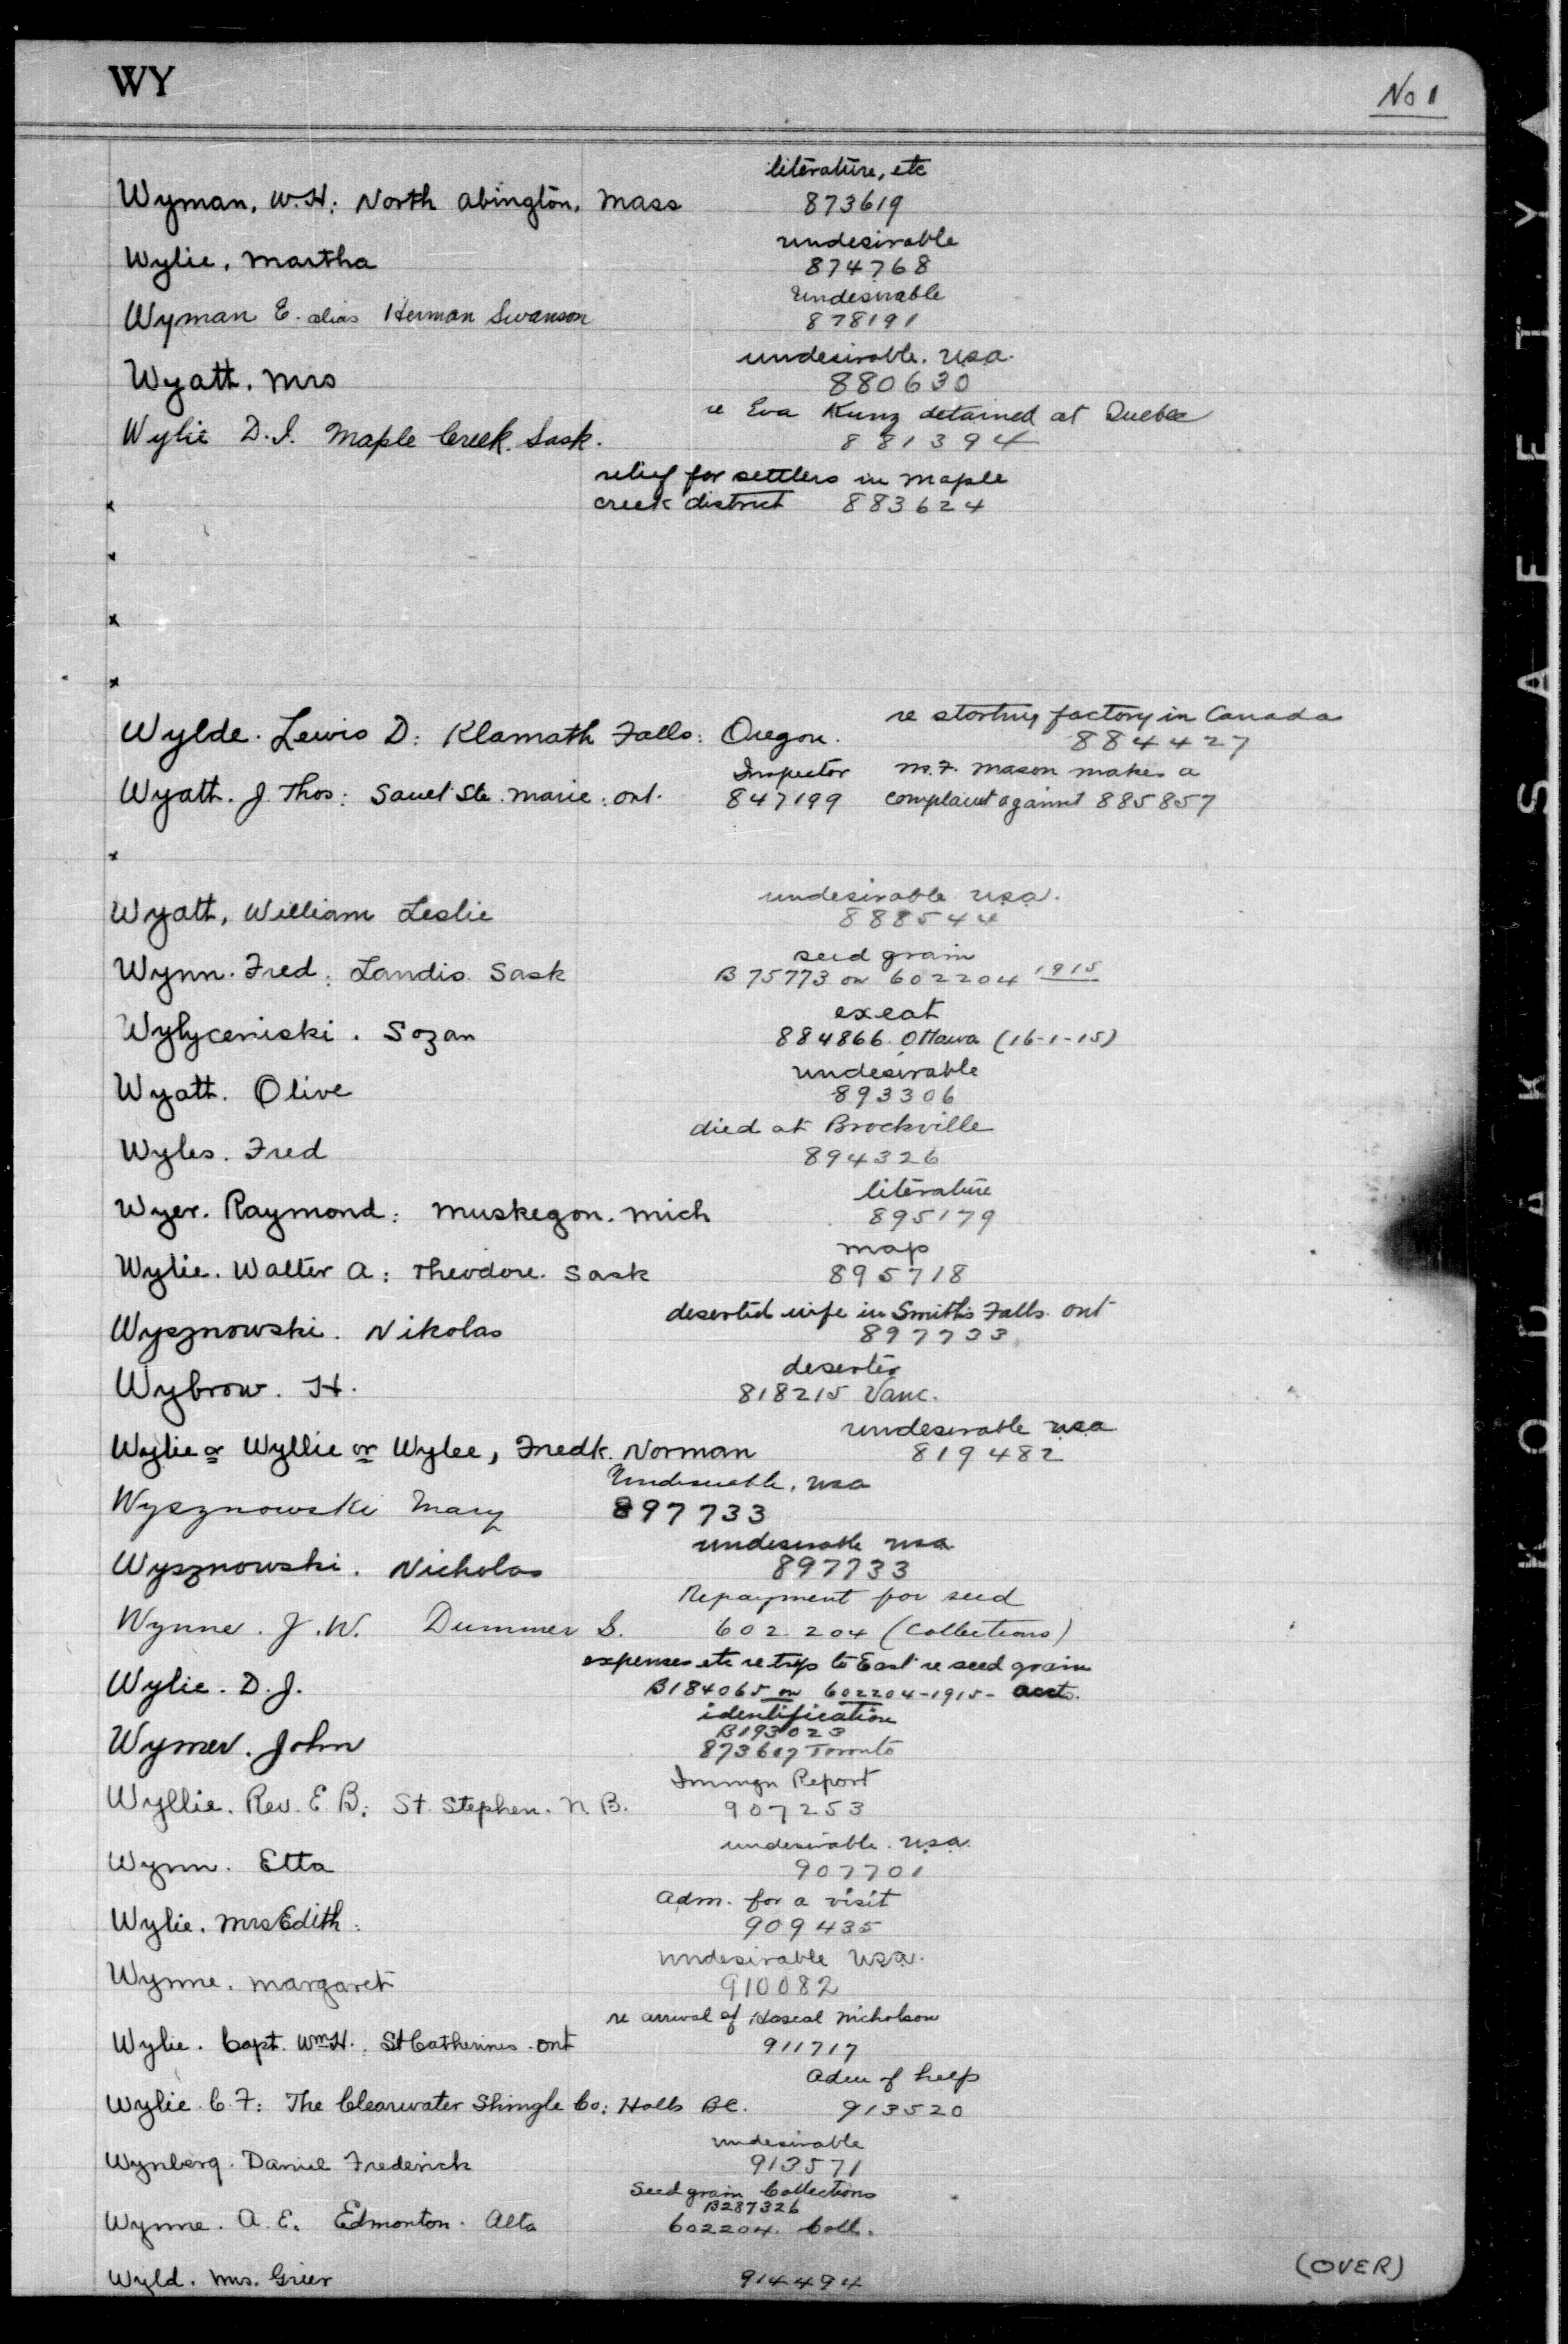 WY
No 1
literature, etc
Wyman, W.H: North Abington, Mass 873619
undesirable
Wylie, Martha 874768
Undesirable
Wyman E. alias Herman Swanson 878191
undesirable. U.S.A.
Wyatt. Mrs 880630
re Eva Kunz detained at Quebec
Wylie D.J. Maple Creek. Sask. 881394
relief for settlers in Maple
x creek district 883624
x
x
x
re starting factory in Canada
Wylde. Lewis D: Klamath Falls: Oregon. 884427
Inspector M.F. Mason makes a
Wyatt. J. Thos: Sault Ste. Marie: Ont. 847199 complaint against 885857
x
undesirable U.S.A.
Wyatt, William Leslie 888544
seed grain
Wynn. Fred: Landis. Sask B 75773 on 602204 1915
exeat
Wylyceniski. Sozan 884866. Ottawa (16-1-15)
undesirable
Wyatt. Olive 893306
died at Brockville
Wyles. Fred 894326
literature
Wyer. Raymond: Muskegon. Mich 895179
map
Wylie. Walter A: Theodore. Sask 895718
deserted wife in Smith's Falls. Ont
Wysznowski. Nikolas 897733
deserter
Wybrow. H. 818215 Vanc.
undesirable USA
Wylie or Wyllie or Wylee, Fredk. Norman 819482
Undesirable, USA
Wysznowski Mary 897733
undesirable USA
Wysznowski. Nicholas 897733
Repayment for seed
Wynne. J.W. Dummer S. 602204 (Collections)
expenses etc re trip to East re seed grain
Wylie. D.J. B184065 on 602204-1915- Acct.
identification
B193023
Wymer. John 873607 Toronto
Immgn Report
Wyllie. Rev. E.B: St. Stephen. N.B. 907253
undesirable. U.S.A.
Wynn. Etta 907701
Adm. for a visit
Wylie. Mrs Edith: 909435
undesirable U.S.A.
Wynne. Margaret 910082
re arrival of Nicholson
Wylie. Capt. Wm H.: St Catherines. Ont 911717
Adm of help
Wylie. C.F: The Clearwater Shingle Co: Halls BC. 913520
undesirable
Wynberg. Daniel Frederick 913571
Seed grain Collections
B287326
Wynne. A.E. Edmonton. Alta 602204. Coll.
Wyld. Mrs. Greer 914494
(OVER)
KODAK SAFETY